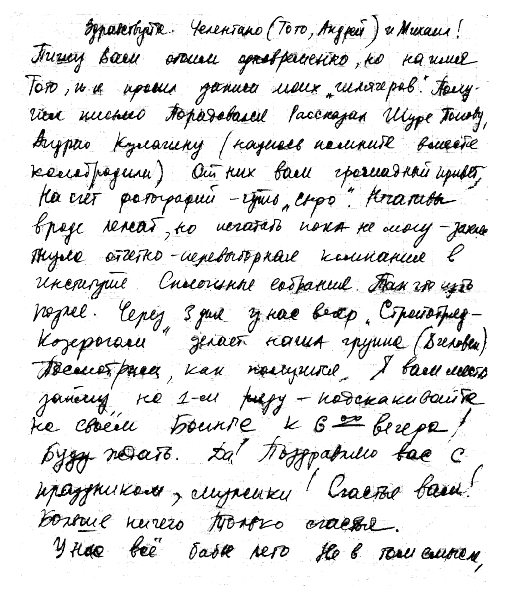 Здравствуйте. Челентано (Тото, Андрей) и Михаил!
Пишу Вам обоим одновременно, но на имя
Тото, т.к. просил записи моих „шлягеров". Полу-
чил письмо Порадовался Рассказал Шуре Попову,
Андрею Кулагину (надеюсь помните вместе
колобродили) От них вам громадный привет,
На счёт фотографий – чуть „сыро". Негативы
вроде лежат, но печатать пока не могу – захлес-
тнула отчётно-перевыборная компания в
институте Сплошные собрания. Так что чуть
позже. Через 3 дня у нас вечер „Стройотряд-
" делает наша группа (8 человек)
Посмотрим, как получится. Я вам место
займу на 1-м ряду – подскакивайте
на своём Боинге к 6<sup>оо</sup> вечера!
Буду ждать. Да! Поздравляю вас с
праздником, мужики! Счастья вам!
Больше ничего только счастья.
У нас всё бабье лето Не в том смысле,